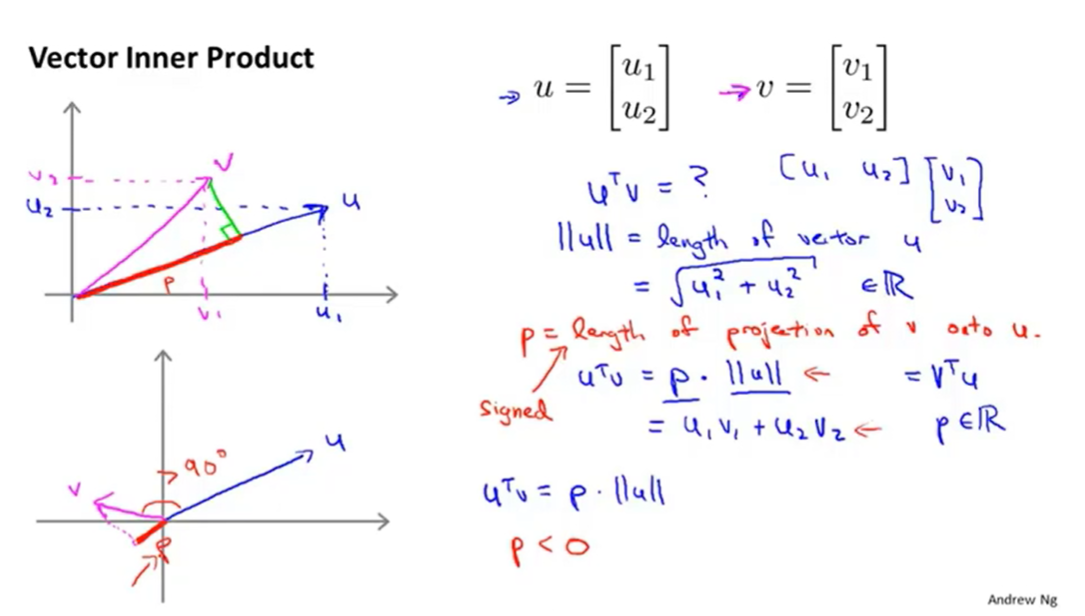 Vector Inner Product
→ u = [u₁ u₂] → v = [v₁ v₂]
uᵀv = ? [u₁ u₂] [v₁ v₂]
||u|| = length of vector u
= √u₁² + u₂² ∈ ℝ
p = length of projection of v onto u.
signed
uᵀv = p · ||u|| ← = vᵀu
= u₁v₁ + u₂v₂ ← p ∈ ℝ
uᵀv = p · ||u||
p < 0
v₂
u₂
v
u
p
v₁
u₁
> 90°
u
v
p
Andrew Ng